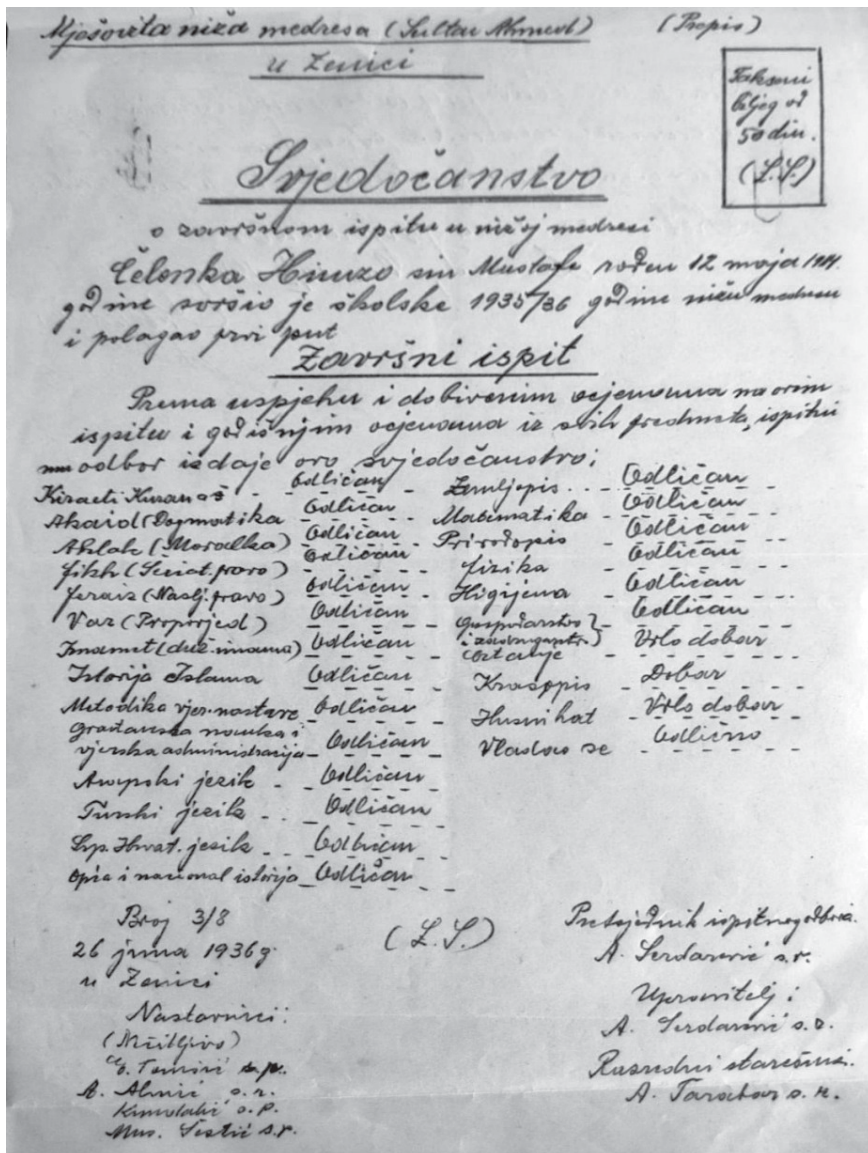 Mješovita niža medresa (Sultan Ahmed) (Prepis)
u Zenici
Takseni
biljeg od
50 din.
(L.S.)
Svjedočanstvo
o završnom ispitu u nižoj medresi
Čelenka Himzo sin Mustafe rođen 12 maja
godine svršio je školske 1935/36 godine nižu medresu
i polagao prvi put
Završni ispit
Prema uspjehu i dobivenim ocjenama na ovim
ispitu i godišnjim ocjenama iz svih predmeta, ispitni
odbor izdaje ovo svjedočanstvo:
Kiraeti Kuran - - Odličan
Akaid (Dogmatika - Odličan
Ahlak (Moralka) - Odličan
Fikh (Šeriat. pravo) - Odličan
Feraiz (Naslj. pravo) - Odličan
Vaz (Propovjed) - Odličan
Imamet (duž. imama) - Odličan
Istorija Islama Odličan
Metodika vjer. nastave Odličan
Građanska nauka i
vjerska administracija - Odličan
Arapski jezik - Odličan
Turski jezik - Odličan
Srp. Hrvat. jezik - Odličan
Opća i nacional istorija Odličan
Zemljopis - - Odličan
Matimatika - Odličan
Prirodopis - Odličan
Fizika - Odličan
Higijena - Odličan
Gospodarstvo
i zadrugarstvo) Odličan
Crtanje Vrlo dobar
Krasopis - Dobar
Husni hat - Vrlo dobar
Vladao se - Odlično
Broj 3/8
26 juna 1936 g.
u Zenici
(L.S.)
Nastavnici:
A. s.r.
s.r.
Mus. Šestić s.r.
Pretsjednik ispitnog odbora.
A. Serdarević s.r.
Upravitelj:
A. Serdarević s.r.
Razredni starešina.
A. Tarabar s.r.